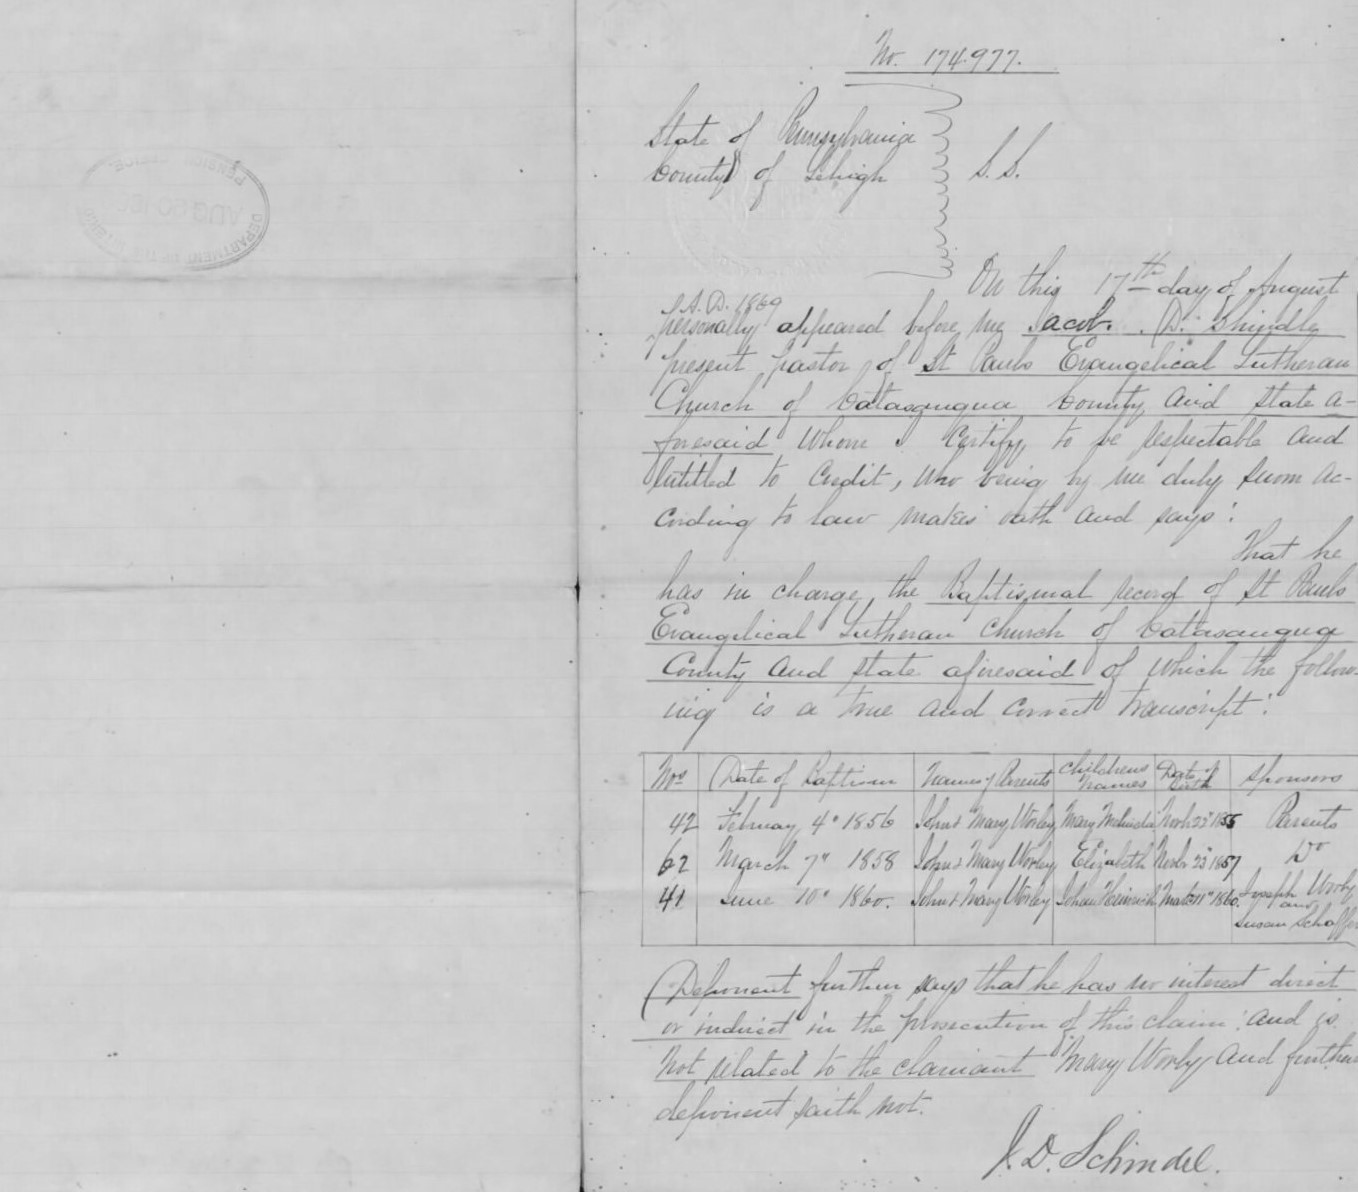 No. 174.977.
State of Pennsylvania
County of Lehigh S.S.
On this 17th day of August
A.D. 1869
personally appeared before me Jacob. D. Shindle
present pastor of St Pauls Evangelical Lutheran
Church of Catasauqua County and State a-
foresaid whom I Certify to be respectable and
Entitled to Credit, who being by me duly sworn ac-
cording to law makes oath and says:
That he
has in charge the Baptismal record of St Pauls
Evangelical Lutheran Church of Catasauqua
County and State aforesaid of which the follow-
ing is a true and correct transcript:
Nos Date of Baptism Names of Parents Childrens Names Date of birth Sponsors
42 February 4" 1856 John & Mary Worly Mary Novbr 22" 1855 Parents
62 March 7" 1858 John & Mary Worly Elizabeth Novbr 23" 1857 Do
41 June 10" 1860. John & Mary Worly Johan Heinrich March 11" 1860. Joseph Worly
and
Susan Schaffer
Deponent further says that he has no interest direct
or indirect in the prosecution of this claim: and is
not related to the claimant Mary Worly and further
deponent saith not.
J. D. Schindel.